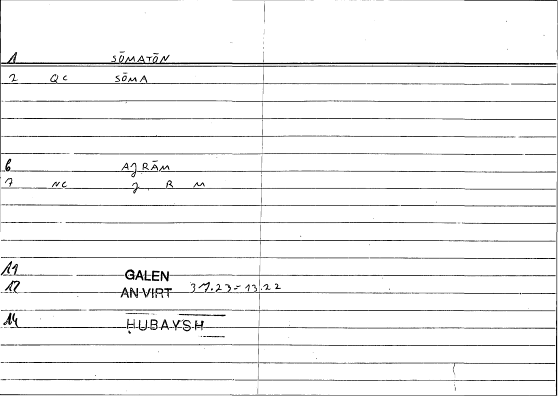 1 SŌMATŌN
2 QC SŌMA
6 AJRĀM
7 NC J R M
11 GALEN
12 AN VIRT
14 ḤUBAYSH